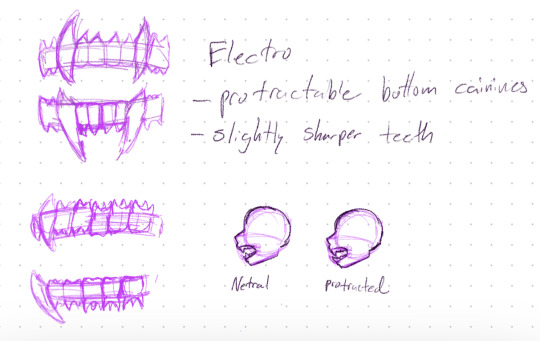 Electro
- protractable bottom cainines
- slightly sharper teeth
Netral
protracted